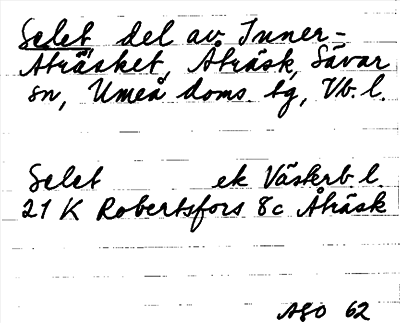 Selet del av Inner-
Åträsket, Åträsk, Sävar
sn, Umeå doms. tg, Vb. l.
Selet ek Västerb. l.
21 K Robertsfors 8c Åträsk
AGO 62